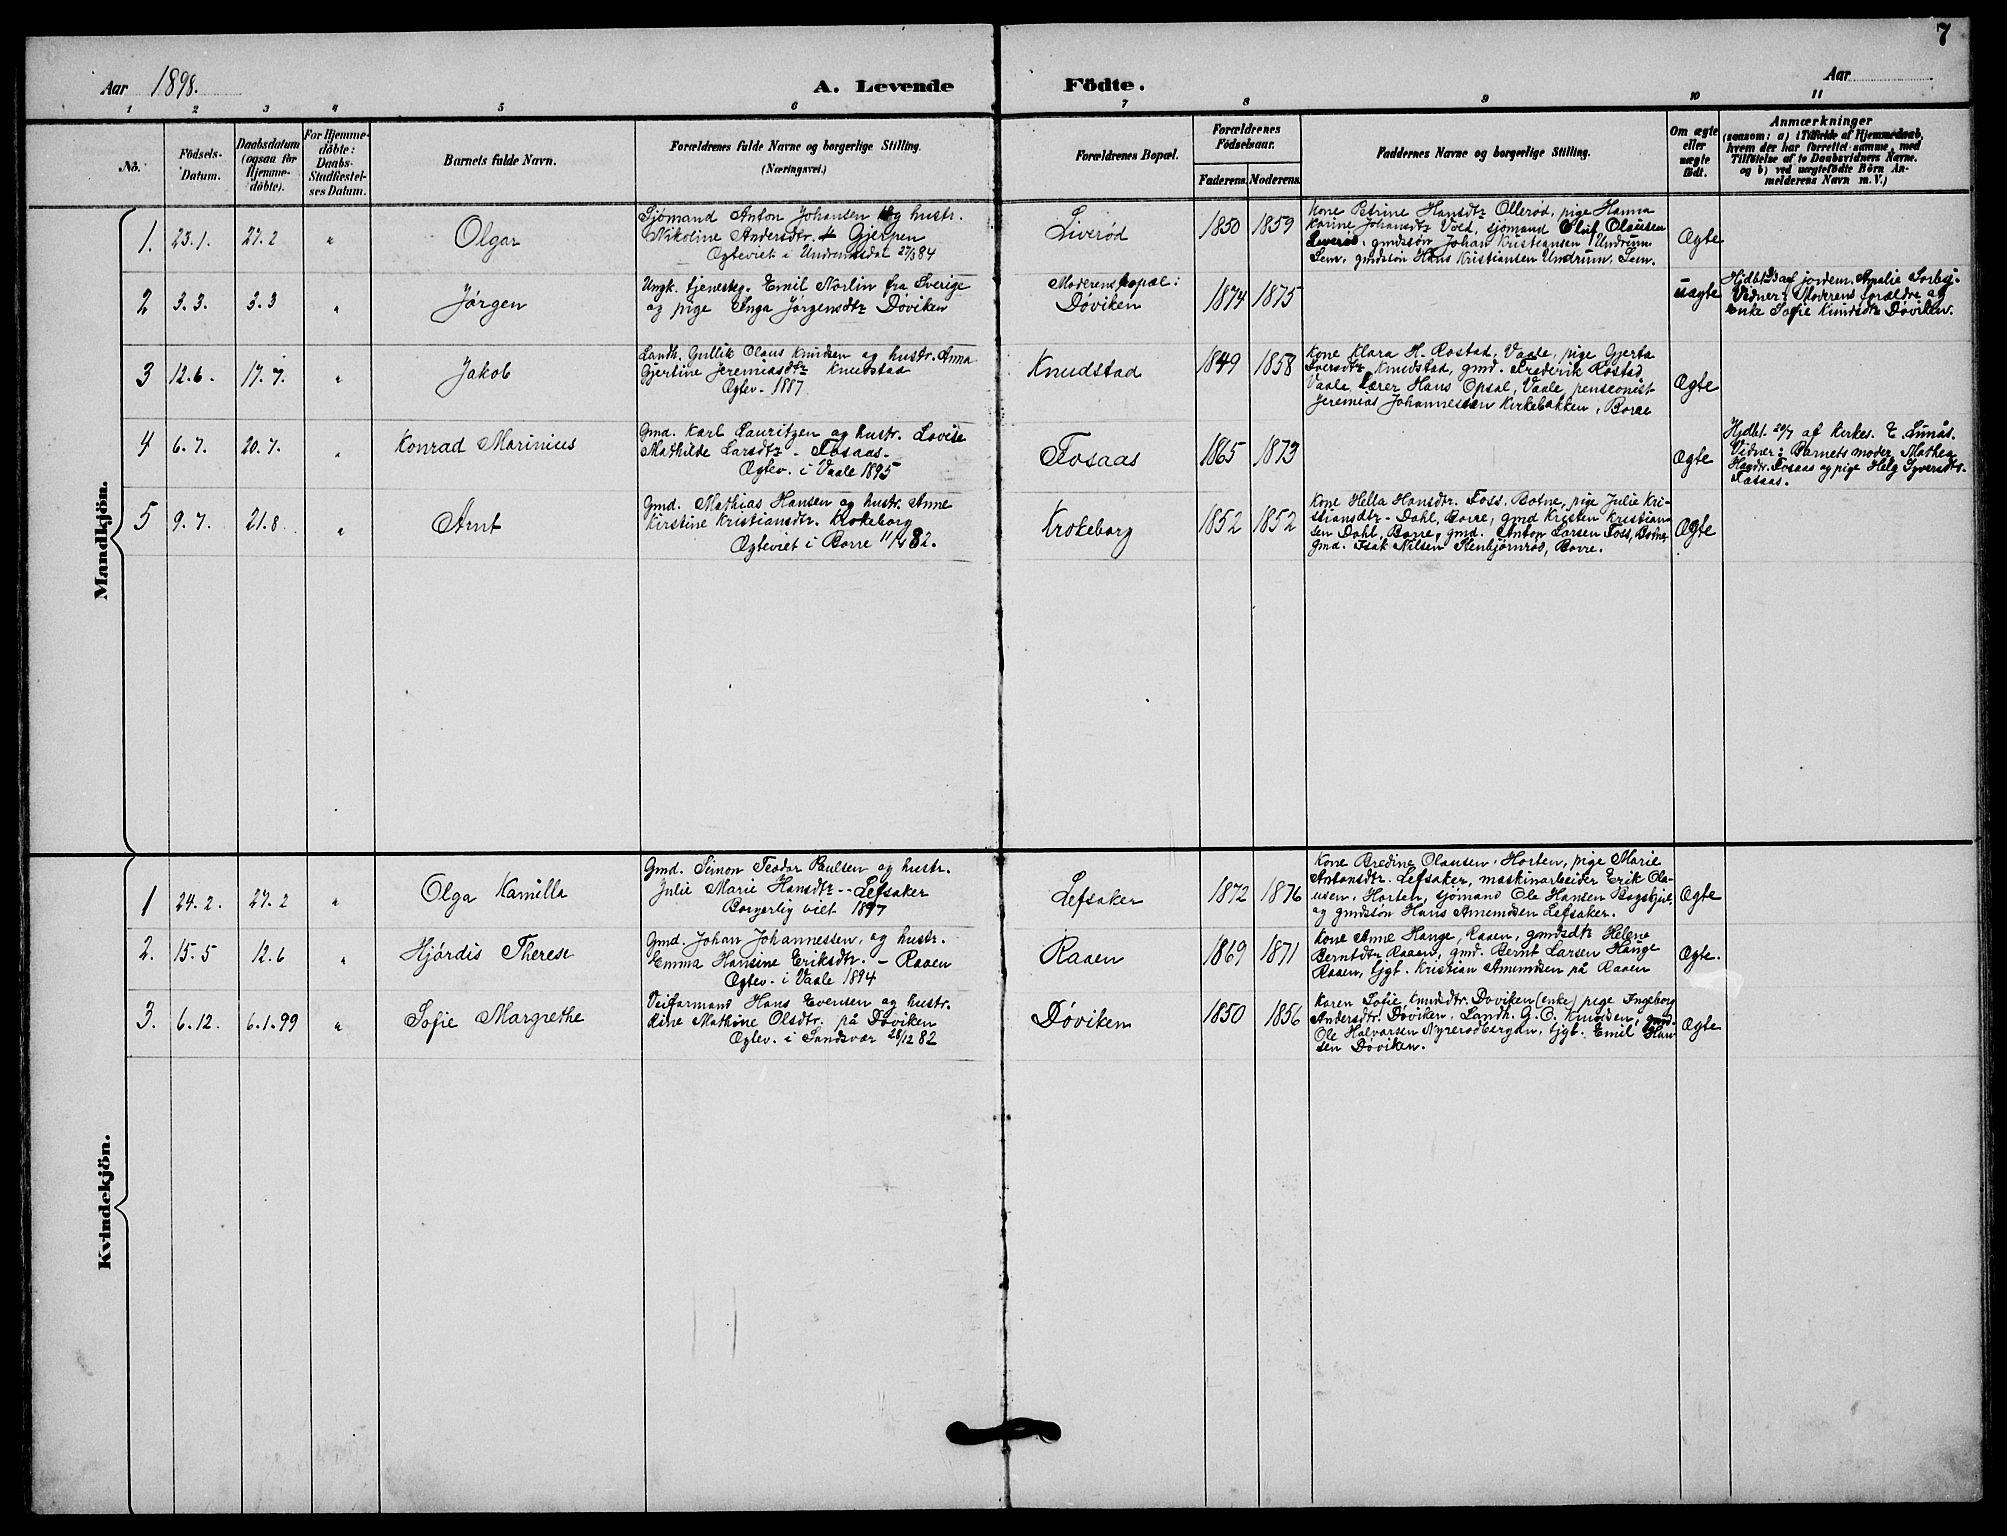 7
Aar 1898. A. Levende Födte. Aar
1 2 3 4 5 6 7 8 9 10 11
No.
Födsels-
Datum.
Daabsdatum
(ogsaa for
Hjemme-
döbte).
For Hjemme-
döbte:
Daabs-
Stadfæstel-
ses Datum.
Barnets fulde Navn.
Forældrenes fulde Navne og borgerlige Stilling.
(Næringsvei.)
Forældrenes Bopæl.
Forældrenes
Födselsaar.
Faderens. Moderens.
Faddernes Navne og borgerlige Stilling.
Om ægte
eller
uægte
födt.
Anmærkninger
(saasom: a) i Tilfælde af Hjemmedaab,
hvem der har forrettet samme, med
Tilföielse af to Daabsvidners Navne.
og b) ved uægtefödte Börn An-
melderens Navn m. V.)
Mandkjön.
1. 23.1. 27.2 " Olgar
Sjömand Anton Johansen og hustr.
Nikoline Andersdtr. Gjerpen
Ægteviet i Undrumsdal 27/3 84
Liverød
1850 1859
Kone Petrine Hansdtr Ollerød, pige Hanna
Karine Johansdtr Vold, sjömand Oluf Olausen
Liverød, gmdssön Johan Kristiansen Undrum
Sem, gmdssön Hans Kristiansen Undrum, Sem.
Ægte
2 3.3. 3.3 " Jørgen
Ungk. tjenesteg. Emil Norlin fra Sverige
og pige Inga Jørgensdtr Døviken
Moderens bopæl:
Døviken
1874 1875
uægte
Hjdbt af jordem. Amalie
Vidner: Moderens forældre og
Enke Sofie Knudsdtr Døviken.
3 12.6. 17.7. " Jakob
Landh. Gullik Olaus Knudsen og hustr. Anna
Gjertine Jeremiasdtr Knudstad
Ægtev. 1887
Knudstad
1849 1858
Kone Klara H. Rostad, Vaale, pige Gjerta
Iversdtr Knudstad, gmd. Frederik Rostad
Vaale, Lærer Hans Opsal, Vaale, pensionist
Jeremias Johannessen Kirkebakken, Borre
Ægte
4 6.7. 20.7. " Konrad Marinius
Gmd. Karl Lauritzen og hustr. Lovise
Mathilde Larsdtr - Fosaas-
Ægtev. i Vaale 1895
Fosaas
1865 1873
Ægte
Hjdbt. 20/7 af Kirkes. E. Lunås.
Vidner: Barnets moder, Mathea
Hagdr. Fosaas og pige Helg Syversdtr.
Fosaas.
5 9.7. 21.8. " Arnt
Gmd. Mathias Hansen og hustr. Anne
Kirstine Kristiansdtr. Krokeborg
Ægteviet i Borre 11/4 82.
Krokeborg
1852 1852
Kone Hella Hansdtr. Foss. Botne, pige Julie Kri-
stiansdtr - Dahl, Borre, gmd Kristen Kristian-
sen Dahl, Borre, gmd. Anton Larsen Foss, Botne,
Gmd. Isak Nilsen Stenbjørnrød, Borre.
Ægte
Kvindekjön.
1 24.2. 27.2 " Olga Kamilla
Gmd. Simon Teodor Paulsen og hustr.
Julie Marie Hansdtr -- Lefsaker
Borgerlig viet 1897
Lefsaker
1872 1876
Kone Bredine Olausen, Horten, pige Marie
Antonsdtr. Lefsaker, maskinarbeider Erik Ola-
usen, Horten, sjömand Ole Hansen
og gmdssön Hans Amundsen Lefsaker.
Ægte
2. 15.5 12.6 " Hjórdis Therese
Gmd. Johan Johannessen, og hustr.
Emma Hansine Eriksdtr. - Raaen
Ægtev. i Vaale 1894
Raaen
1869 1871
Kone Anne Hauge, Raaen, gmdsdtr Helene
Berntdtr Raaen, gmd. Bernt Larsen Hauge
Raaen, tjgt. Kristian Amundsen på Raaen
Ægte.
3. 6.12. 6.1.99 " Sofie Margrethe
Veiformand Hans Evensen og hustr.
Rine Mathine Olsdtr. på Døviken
Ægtev. i Sandsvær 28/12 82
Døviken
1850 1856
Karen Sofie Knudsdtr. Døviken (enke) pige Ingeborg
Andersdtr. Døviken, Landh. G. O. Knudsen, gmd.
Ole Halvorsen Nyrerødbergan, tjgt. Emil Han-
sen Døviken.
Ægte